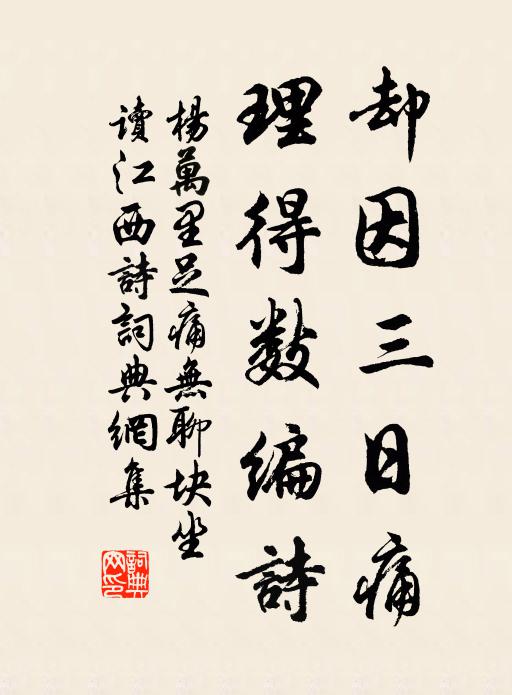 却因三日痛
理得数编詩
楊萬里足痛無聊块坐
讀江西詩詞典網集
詞典网印